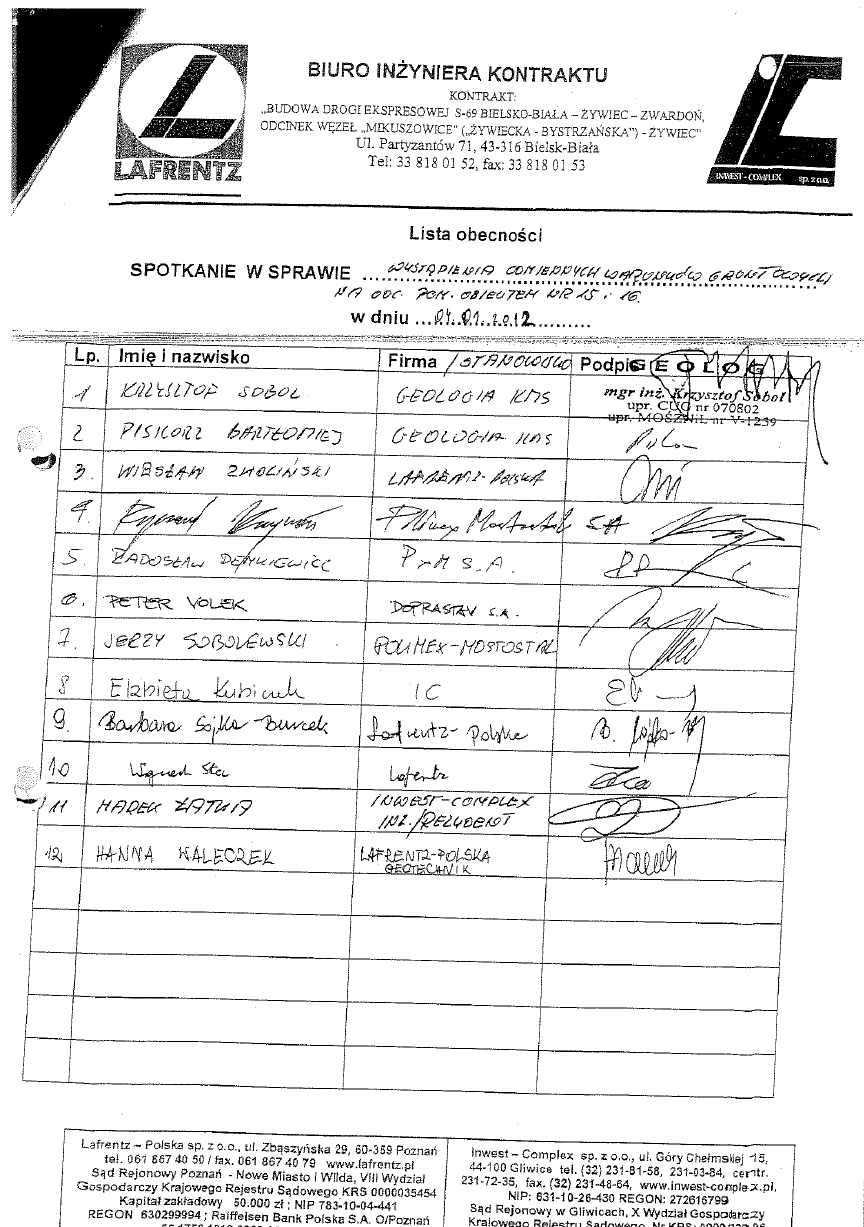 BIURO INŻYNIERA KONTRAKTU
KONTRAKT:
„BUDOWA DROGI EKSPRESOWEJ S-69 BIELSKO-BIAŁA – ŻYWIEC – ZWARDOŃ,
ODCINEK WĘZEŁ „MIKUSZOWICE” („ŻYWIECKA - BYSTRZAŃSKA”) - ŻYWIEC”
Ul. Partyzantów 71, 43-316 Bielsk-Biała
Tel: 33 818 01 52, fax: 33 818 01 53
LAFRENTZ
INWEST - COMPLEX sp. z o.o.
Lista obecności
SPOTKANIE W SPRAWIE WYSTĄPIENIA ODMIENNYCH WARUNKÓW GRUNTOWYCH
NA ODC. POM. OBIEKTEM NR 15 i 16.
w dniu ...04.01.2012..........
Lp. Imię i nazwisko Firma /STANOWISKO Podpis GEOLOG
1 KRZYSZTOF SOBOL GEOLOGIA KMS mgr inż. Krzysztof Soboł
upr. CUG nr 070802
upr. MOSZNiL nr V-1239
2 PISKORZ BARTŁOMIEJ GEOLOGIA KMS
3. WIESŁAW ZMOLIŃSKI LAFRENTZ-POLSKA
4. Ryszard Polimex Mostostal SA
5. RADOSŁAW DEMKIEWICZ P-M S.A.
6. PETER VOLEK DOPRASTAV S.A.
7. JERZY SOBOLEWSKI POLIMEX-MOSTOSTAL
8 Elżbieta Kubicek IC
9. Barbara Sojka-Burcek Lafrentz-Polska
10 Lafrentz
11 MAREK ŻATKA INWEST-COMPLEX
INŻ./REZYDENT
12 HANNA WALECZEK LAFRENTZ-POLSKA
GEOTECHNIK
Lafrentz – Polska sp. z o.o., ul. Zbąszyńska 29, 60-359 Poznań
tel. 061 867 40 50 / fax. 061 867 40 79 www.lafrentz.pl
Sąd Rejonowy Poznań - Nowe Miasto i Wilda, VIII Wydział
Gospodarczy Krajowego Rejestru Sądowego KRS 0000035454
Kapitał zakładowy 50.000 zł ; NIP 783-10-04-441
REGON 630299994 ; Raiffeisen Bank Polska S.A. O/Poznań
Inwest – Complex sp. z o.o., ul. Góry Chełmskiej 15,
44-100 Gliwice tel. (32) 231-81-58, 231-03-84, centr.
231-72-35, fax. (32) 231-48-64, www.inwest-complex.pl,
NIP: 631-10-26-430 REGON: 272616799
Sąd Rejonowy w Gliwicach, X Wydział Gospodarczy